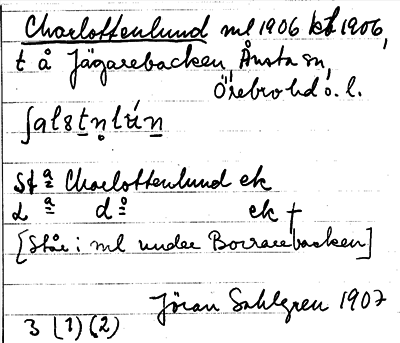 Charlottenlund ml 1906 kbl 1906,
t å Jägarebacken, Ånsta sn,
Örebro hd ö. l.
ʃalstn̥lún
St a̲ Charlottenlund ek
d o̲ ek †
[Står i ml under Borrarebacken]
Jöran Sahlgren 1907
3 (1) (2)